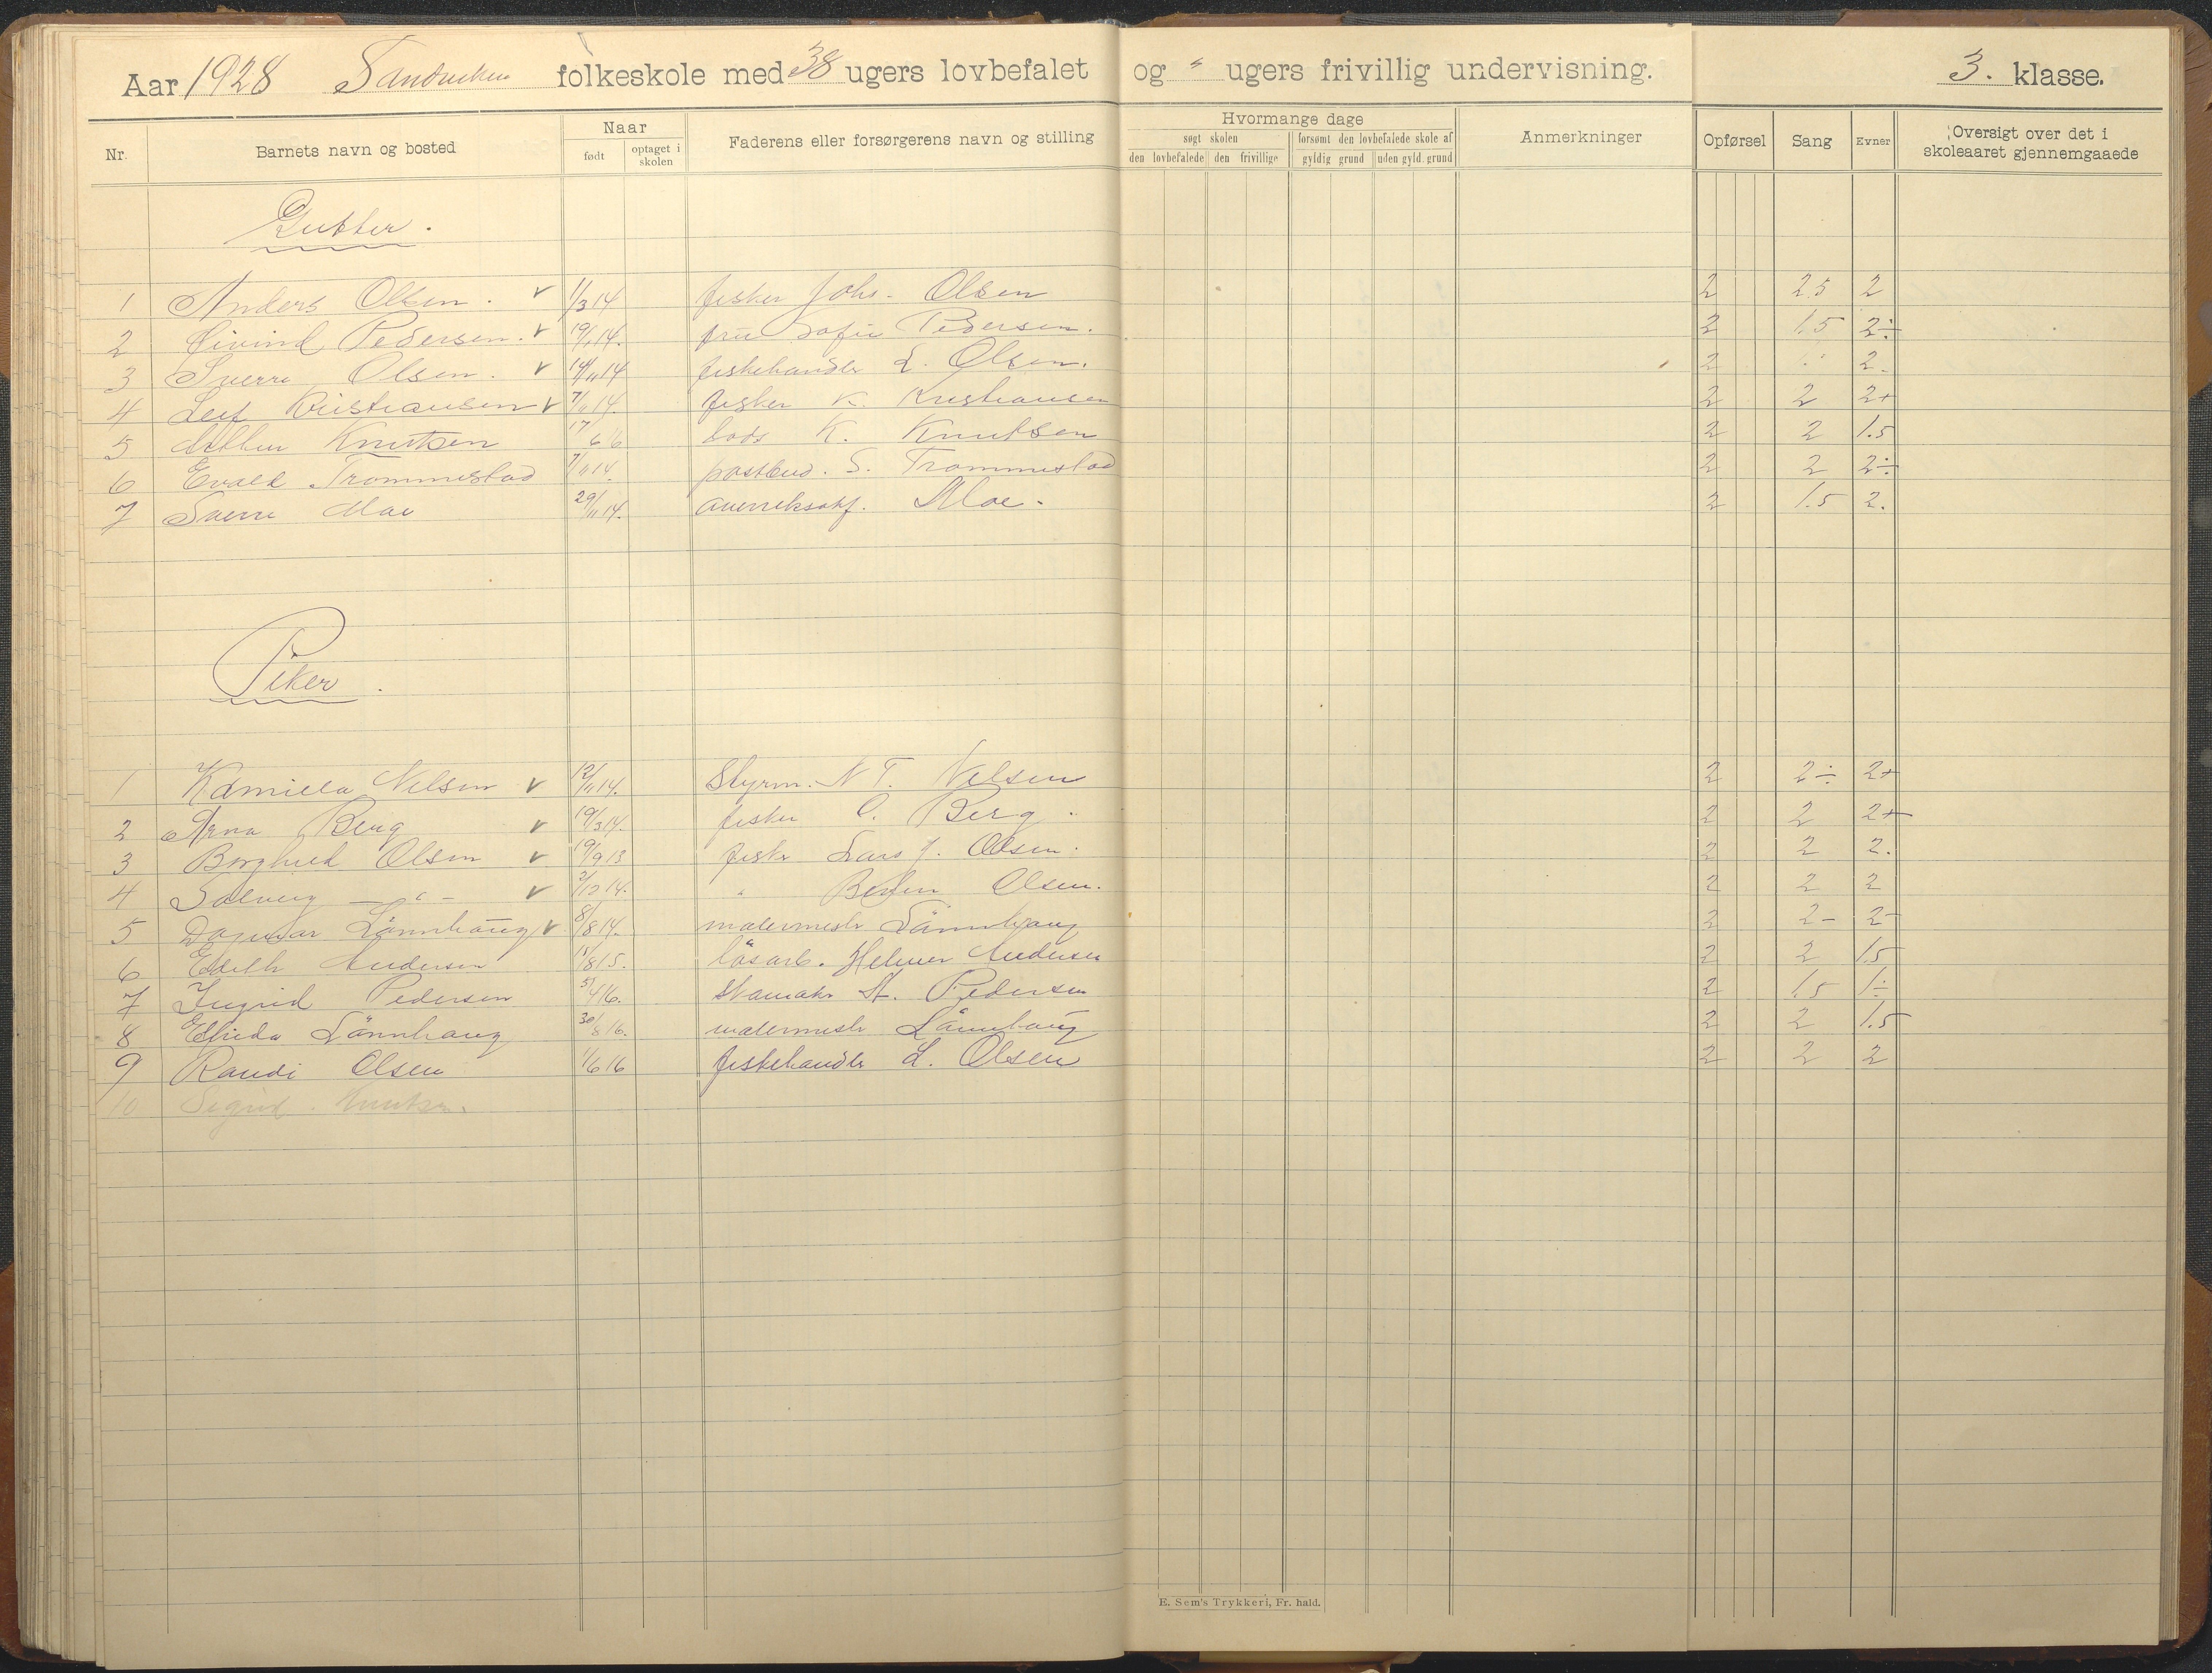 Aar 1928 Sandviken folkeskole med 38 ugers lovbefalet og " ugers frivillig undervisning. 3. klasse.
Nr. Barnets navn og bosted Naar født optaget i skolen Faderens eller forsørgerens navn og stilling Hvormange dage søgt skolen den lovbefalede den frivillige forsømt den lovbefalede skole af gyldig grund uden gyld. grund Anmerkninger Opførsel Sang Evner Oversigt over det i skoleaaret gjennemgaaede
Gutter.
1 Anders Olsen. v 1/3 14 fisker Johs. Olsen 2 2.5 2
2 Øivind Pedersen. v 19/11 14. frü Sofie Pedersen. 2 1.5 2÷
3 Sverre Olsen. v 14/11 14 fiskehandler L. Olsen. 2 2.
4 Leif Kristiansen v 7/11 14. fisker K. Kristiansen 2 2 2+
5 Knutsen 17/6 lods K. Knutsen 2 2 1.5
6 Evald Trommestad 7/11 14. postbud. S. Trommestad 2 2 2÷
7 Sverre Moe 29/11 14. Moe. 2 1.5 2.
Piker.
1 Kamilla Nilsen v 12/11 14. Styrm. N T. Nilsen 2 2÷ 2+
2 Arna Berg v 19/3 14. fisker O. Berg. 2 2 2+
3 Borghild Olsen v 19/9 13 fisker Lars J. Olsen. 2 2 2.
4 Solveig —"— v 2/12 14. " Olsen. 2 2 2
5 Dagmar Lönnhaüg v 8/8 14. malermestr Lönnhaug 2 2- 2-
6 Edith Andersen 15/8 15. løsarb. Helmer Andersen 2 2 1.5
7 Ingrid Pedersen 5/4 16. A. Pedersen 2 1.5 1÷
8 Elfrida Lönnhaug 30/8 16. malermestr Lönnhaüg 2 2 1.5
9 Randi Olsen 1/6 16 fiskehandler L. Olsen 2 2 2
10 Sigrid
E. Sem's Trykkeri, Fr. hald.